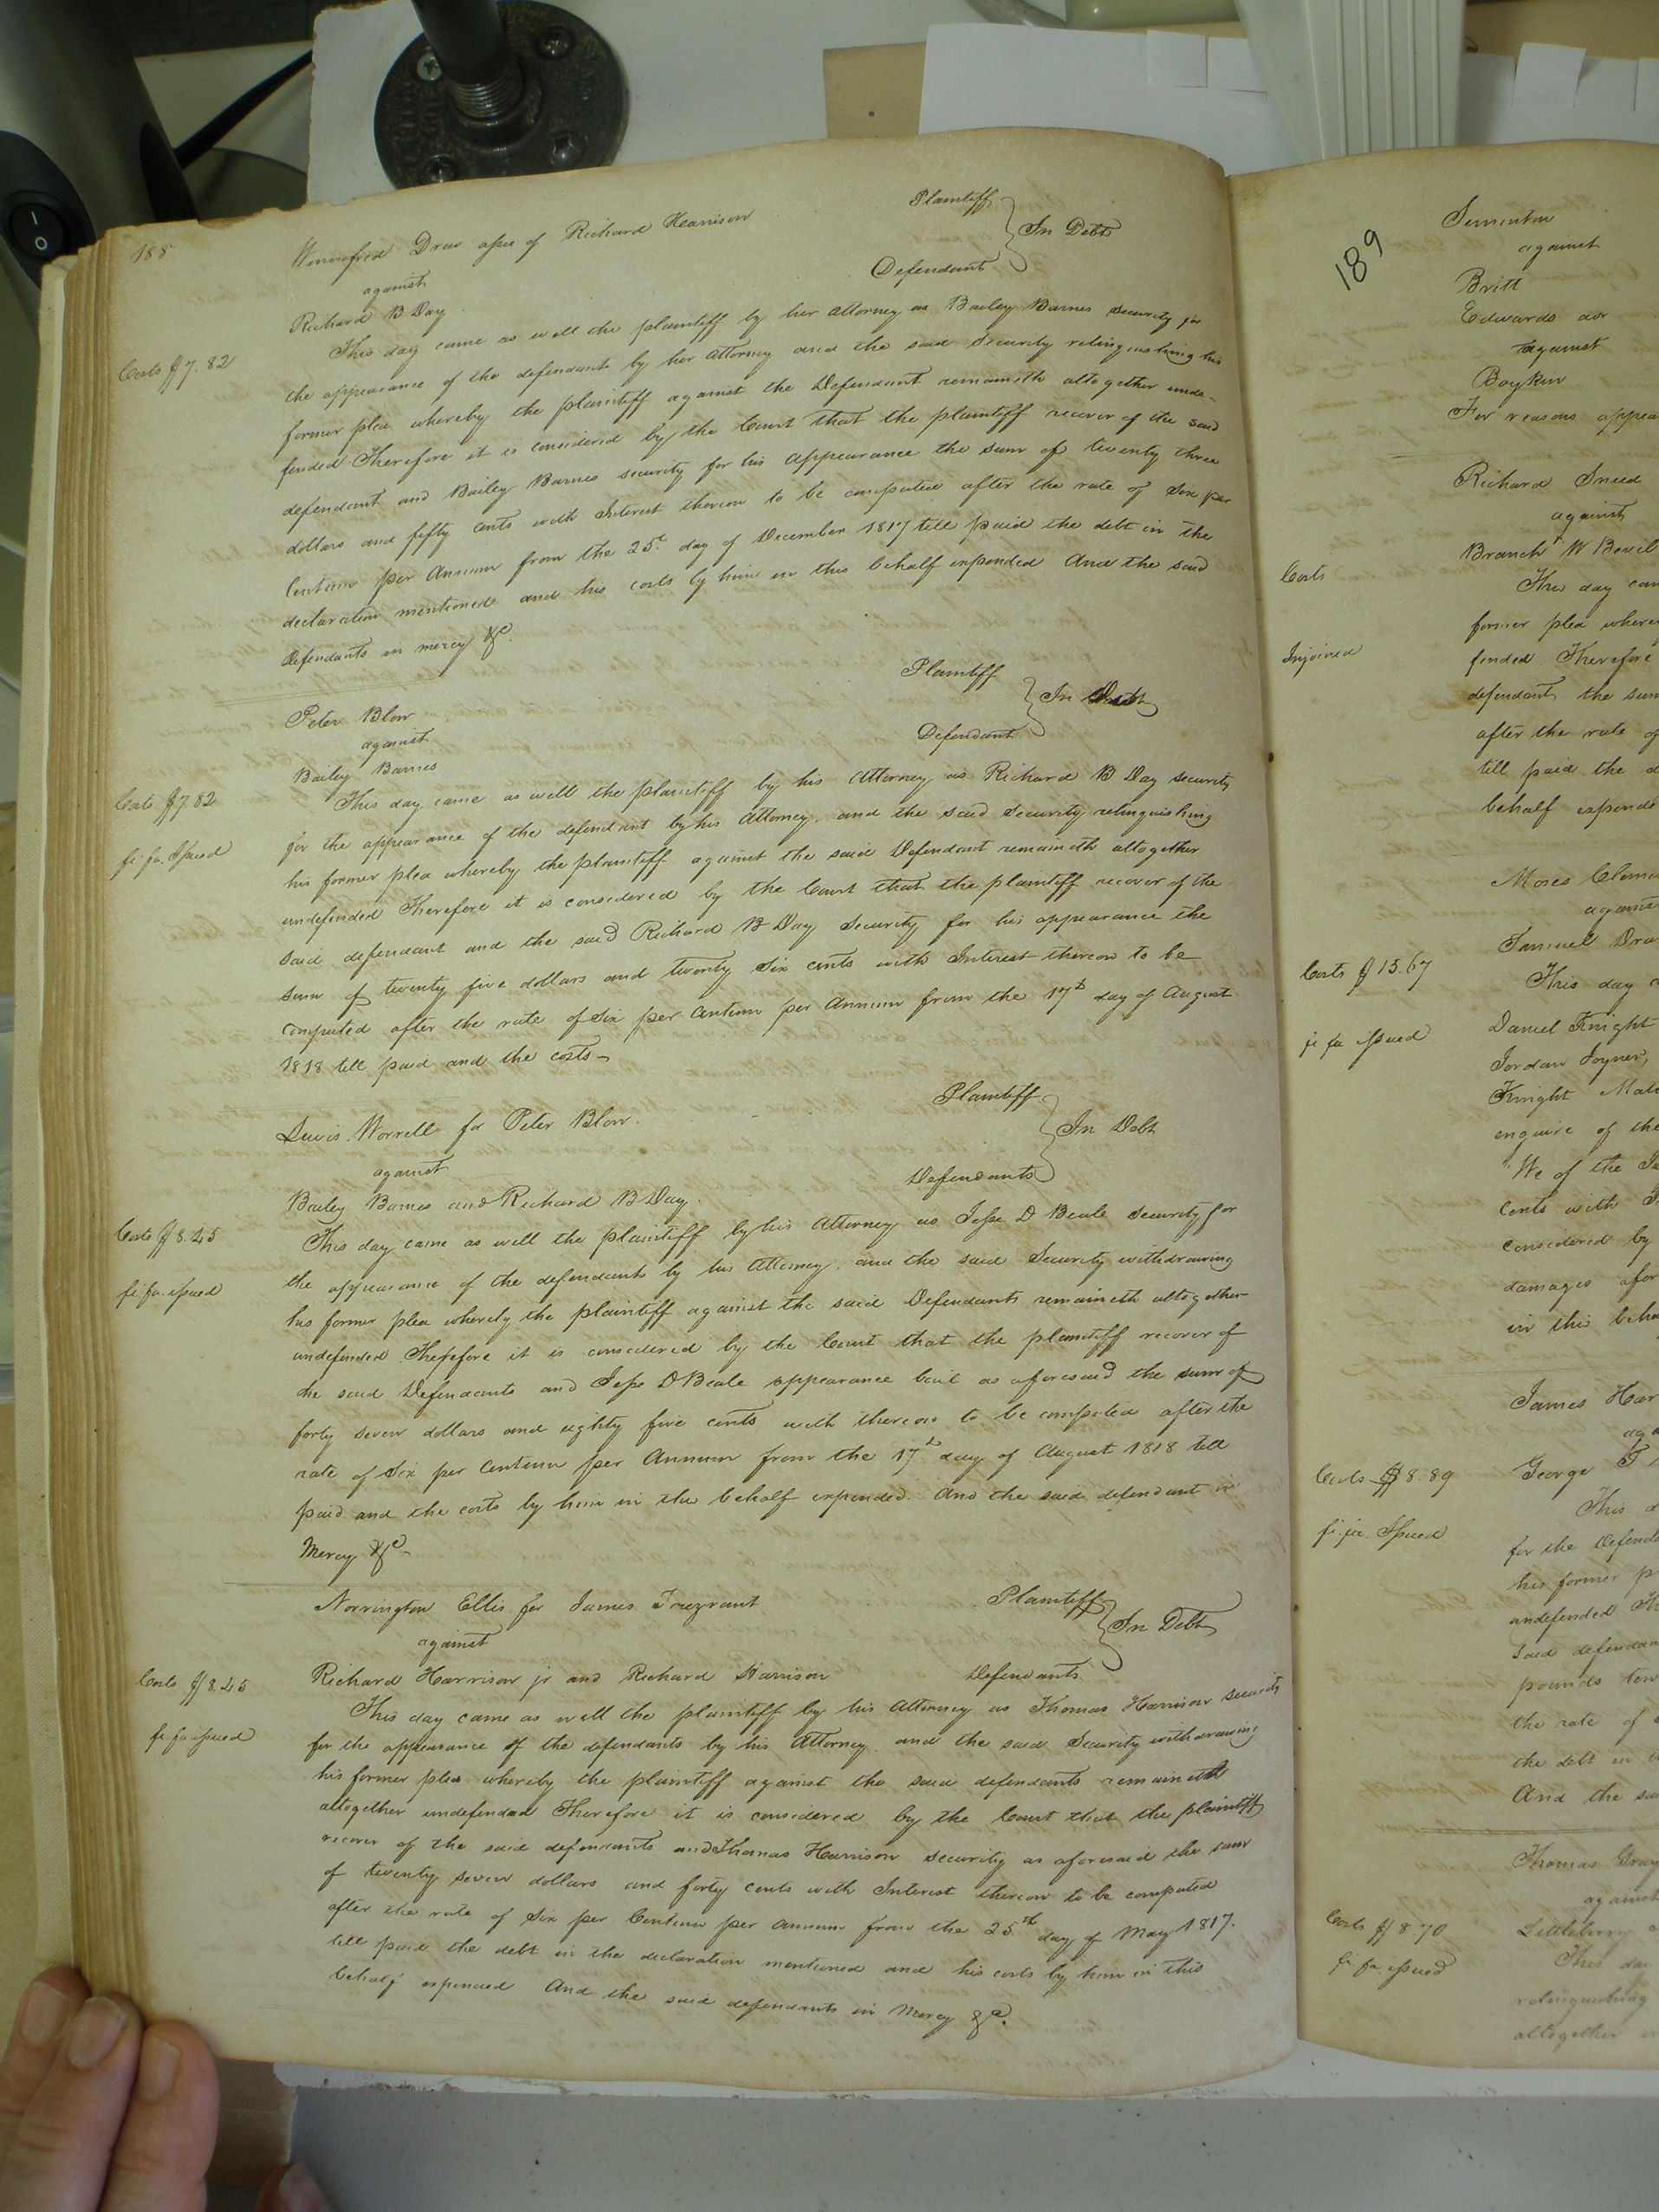 188
Winnefred Drew assee of Richard Harrison Plaintiff
against In Debt
Richard B Day Defendant
Costs $7.82
This day came as well the plaintiff by her attorney as Bailey Barnes security for
the appearance of the defendant by her attorney and the said security relinquishing his
former plea whereby the plaintiff against the Defendant remaineth altogether unde-
fended Therefore it is considered by the Court that the plaintiff recover of the said
defendant and Bailey Barnes security for his appearance the sum of twenty three
dollars and fifty cents with Interest thereon to be computed after the rate of Six per
Centum per Annum from the 25th day of December 1817 till paid the debt in the
declaration mentioned and his costs by him in this behalf expended And the said
Defendants in mercy &c.
Peter Blow Plaintiff
against In Debt
Bailey Barnes Defendant
Costs $7.82
fi. fa. Issued
This day came as well the plaintiff by his Attorney as Richard B Day security
for the appearance of the defendant by his Attorney and the said Security relinquishing
his former plea whereby the plaintiff against the said Defendant remaineth altogether
undefended Therefore it is considered by the Court that the plaintiff recover of the
said defendant and the said Richard B Day Security for his appearance the
sum of twenty five dollars and twenty Six cents with Interest thereon to be
computed after the rate of Six per Centum per Annum from the 17th day of August
1818 till paid and the costs
Lewis Worrell for Peter Blow. Plaintiff
against In Debt
Bailey Barnes and Richard B Day. Defendants
Costs $8.45
fi fa. issued
This day came as well the plaintiff by his Attorney as Jesse D Beale Security for
the appearance of the defendants by his Attorney and the said Security withdrawing
his former plea whereby the plaintiff against the said Defendants remaineth altogether
undefended Therefore it is considered by the Court that the plaintiff recover of
the said Defendants and Jesse D Beale appearance bail as aforesaid the sum of
forty seven dollars and eighty five cents with thereon to be computed after the
rate of Six per Centum per Annum from the 17th day of August 1818 till
paid and the costs by him in this behalf expended. And the said defendant in
Mercy &c
Norrington Ellis for James Trezvant Plaintiff
against In Debt
Richard Harrison jr and Richard Harrison Defendants
Costs $8.45
fi fa issued
This day came as well the plaintiff by his Attorney as Thomas Harrison Security
for the appearance of the defendants by his Attorney and the said Security withdrawing
his former plea whereby the plaintiff against the said defendants remaineth
altogether undefended Therefore it is considered by the Court that the plaintiff
recover of the said defendants and Thomas Harrison security as aforesaid the sum
of twenty seven dollars and forty cents with Interest thereon to be computed
after the rate of Six per Centum per annum from the 25th day of May 1817.
till paid the debt in the declaration mentioned and his costs by him in this
behalf expended And the said defendants in Mercy &c.
189
against
Britt
Edwards
against
Boykin
For reasons
Richard Sneed
against
Branch W
Costs
This day
former plea
Injoined
fended Therefore
defendant the sum
after the rate of
till paid the
behalf
Moses
Samuel
Costs $15.67
This day
fi fa issued
Daniel Knight
Jordan Joyner,
Knight
enquire of the
We of the
cents with
considered by
damages
in this
James
Costs $8.89
George T
fi. fa. Issued
This
for the
his former
undefended
said
pounds ten
the rate of
the debt in
And the
Thomas Gray
Costs $8.70
Littleberry
fi fa issued
This
relinquishing
altogether